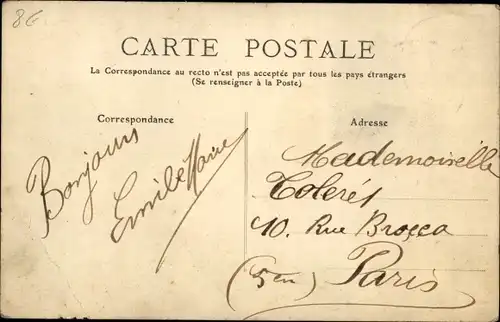 86
CARTE POSTALE
La Correspondance au recto n'est pas acceptée par tous les pays étrangers
(Se renseigner à la Poste)
Correspondance
Bonjour
Emile
Adresse
Mademoiselle
10. Rue Broca
(5en) Paris